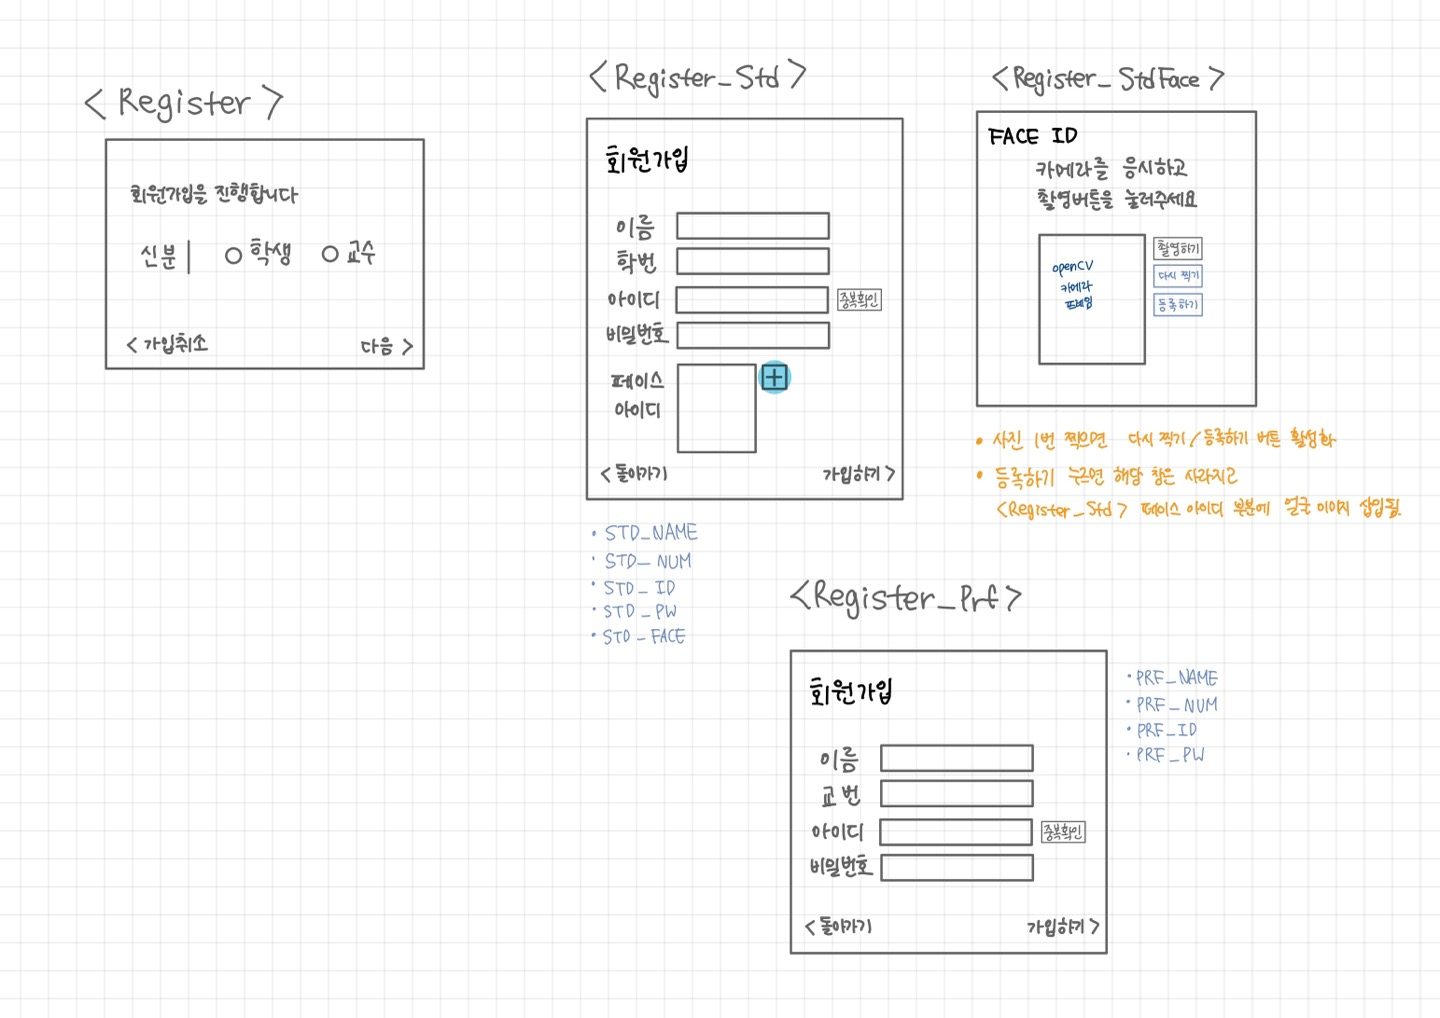 <Register>
회원가입을 진행합니다
신분 | ○ 학생 ○ 교수
< 가입취소 다음 >
<Register_Std>
회원가입
이름
학번
아이디 중복확인
비밀번호
페이스
아이디
+
< 돌아가기 가입하기 >
• STD_NAME
• STD_NUM
• STD_ID
• STD_PW
• STD_FACE
<Register_StdFace>
FACE ID
카메라를 응시하고
촬영버튼을 눌러주세요
openCV
카메라
프레임
촬영하기
다시 찍기
등록하기
• 사진 1번 찍으면 다시 찍기 / 등록하기 버튼 활성화
• 등록하기 누르면 해당 창은 사라지고
<Register_Std> 페이스 아이디 부분에 얼굴 이미지 삽입됨.
<Register_Prf>
회원가입
이름
교번
아이디 중복확인
비밀번호
< 돌아가기 가입하기 >
• PRF_NAME
• PRF_NUM
• PRF_ID
• PRF_PW